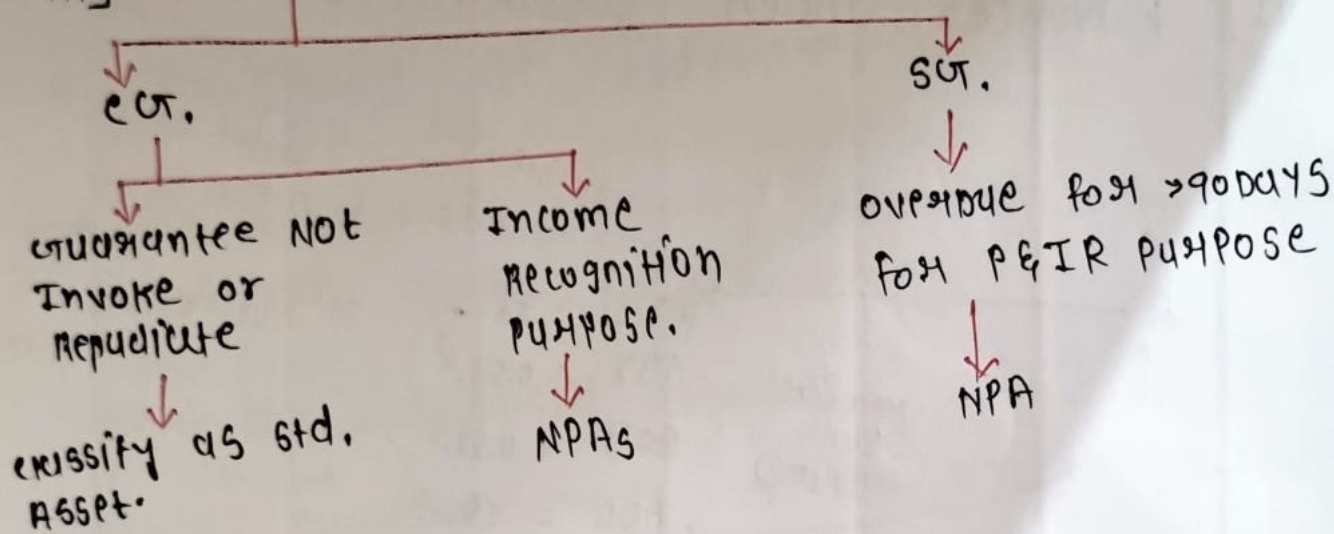 CG.
SG.
Guarantee Not
Invoke or
Repudiate
Classify as std.
Asset.
Income
Recognition
purpose.
NPAs
Overdue for >90 Days
for P & IR purpose
NPA